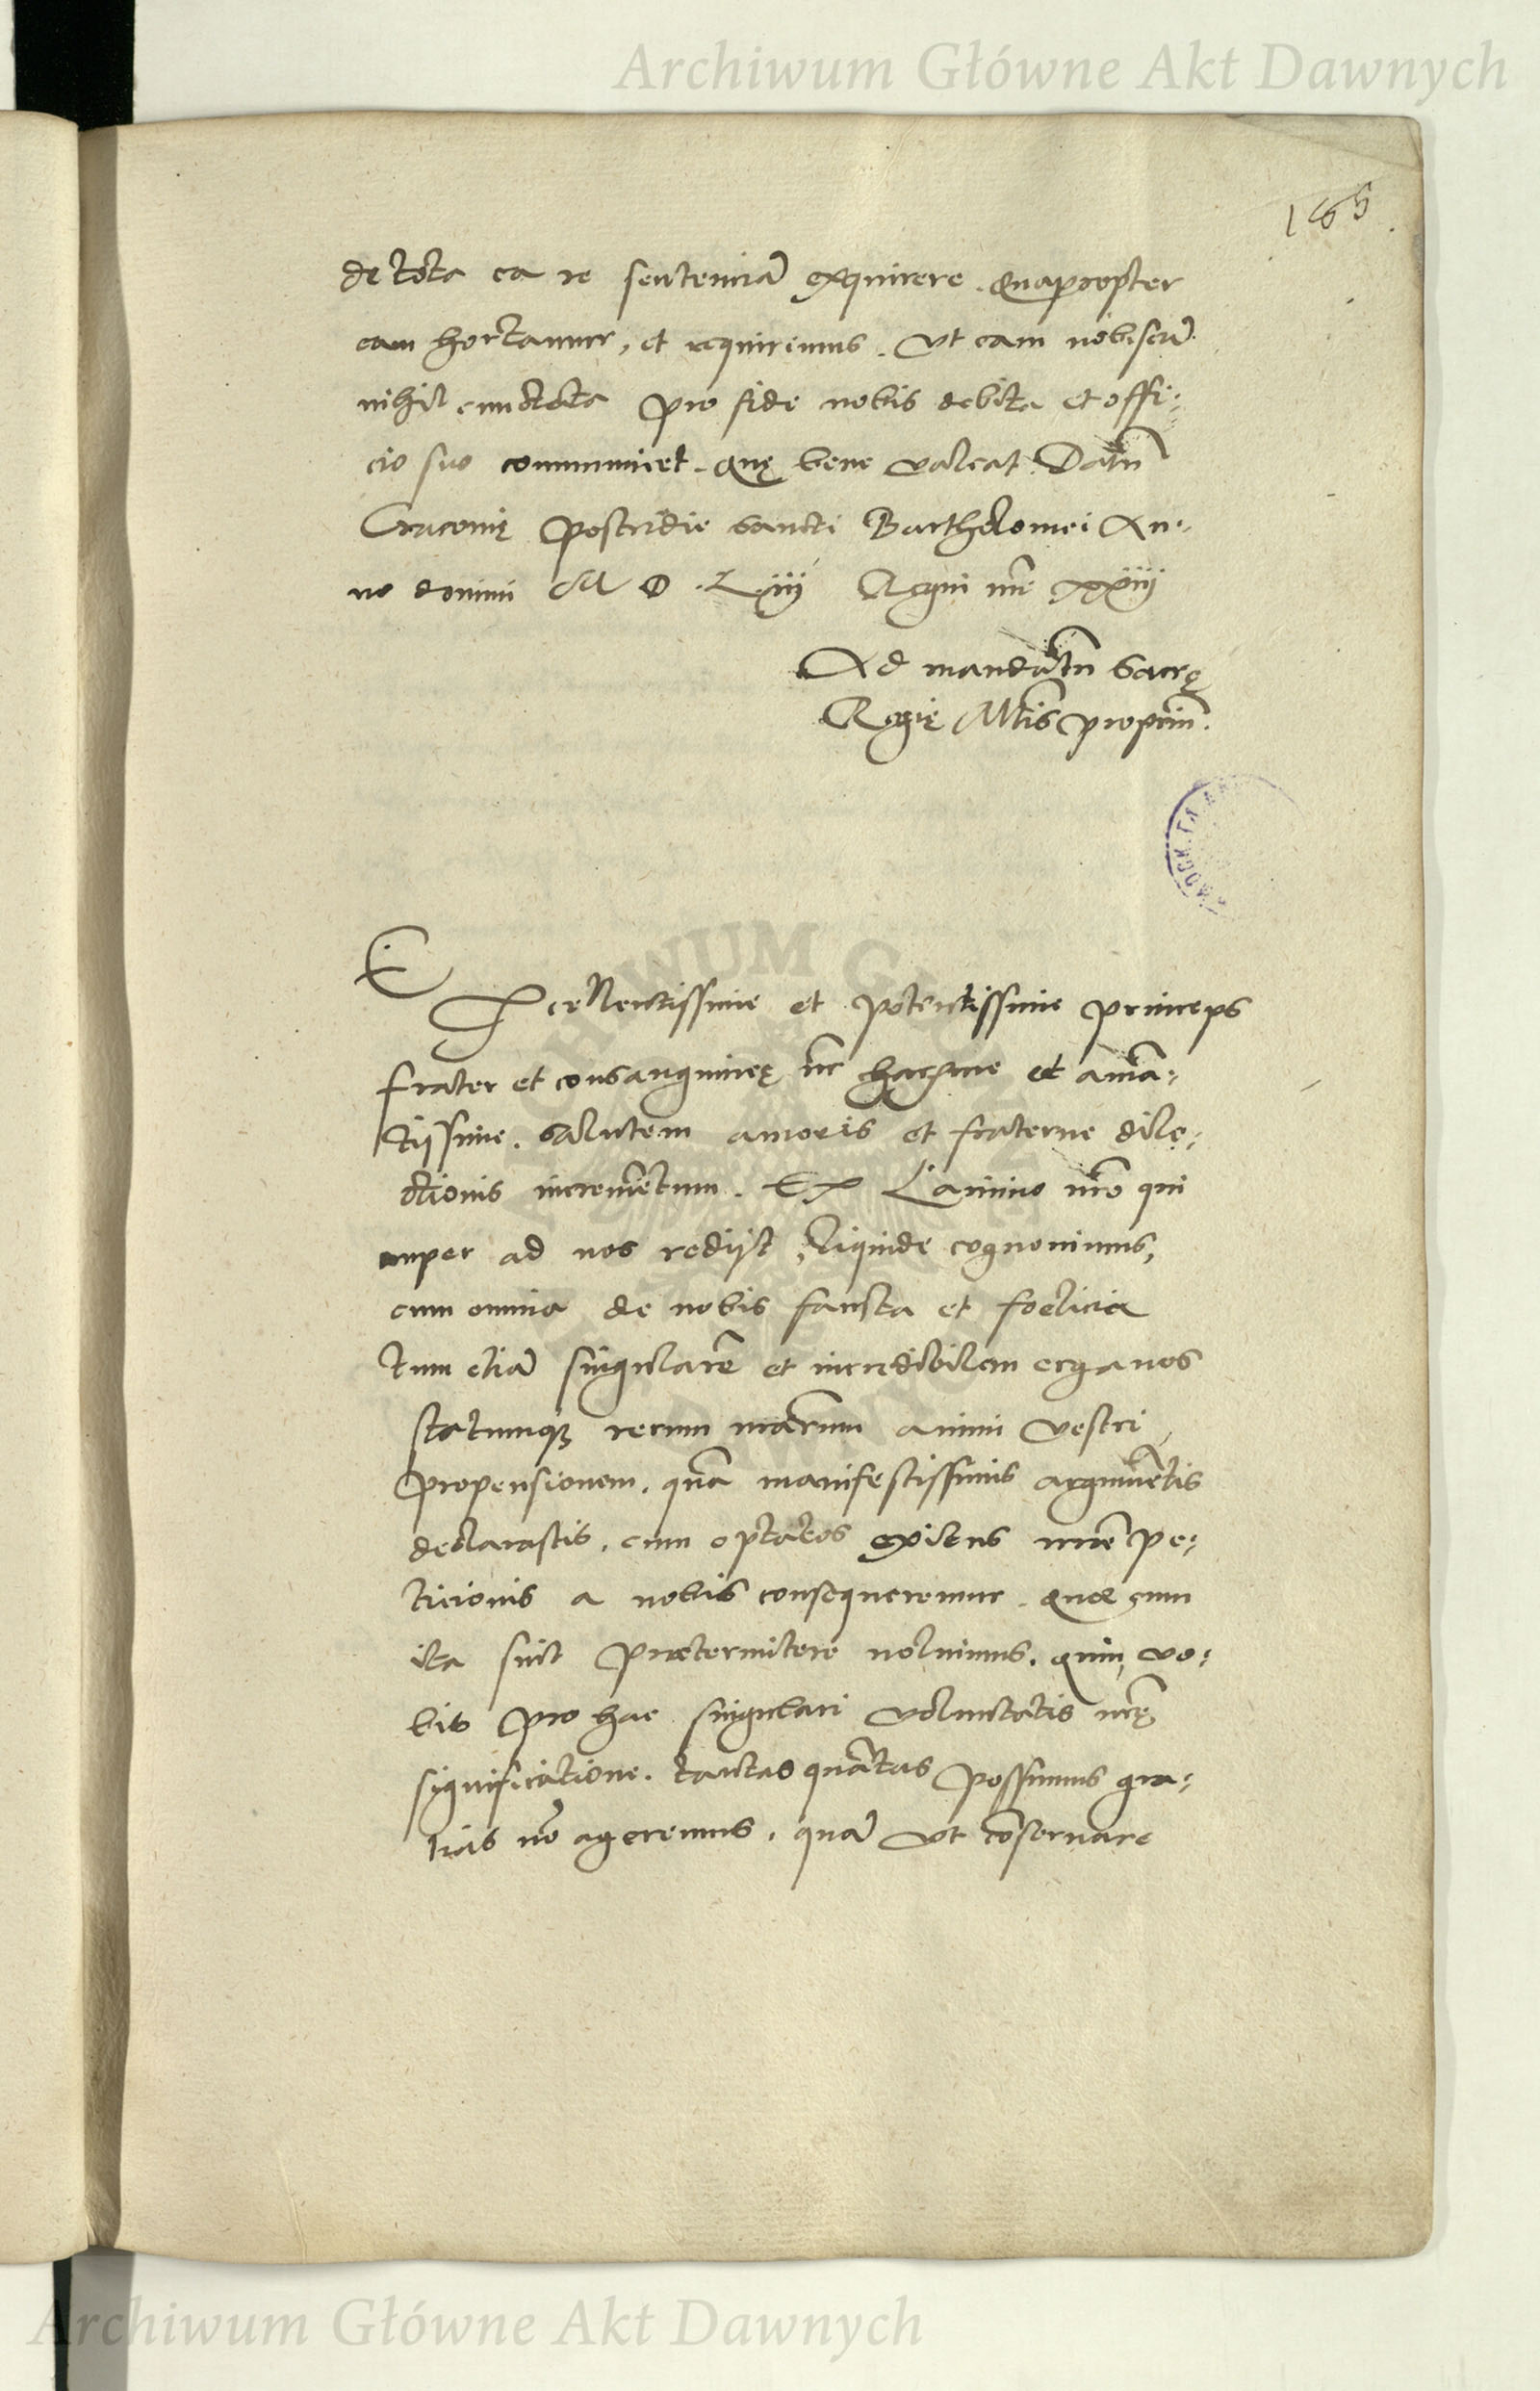 Archiwum Główne Akt Dawnych
165
de tota ea re sentenciã exquirere. Quapropter
eam hortamur, et requirimus. Ut eam nobiscũ
nihil cunctata pro fide nobis debita et offi:
cio suo communicet. Quę bene valeat. Datũ
Cracovię postridie Sancti Bartholomei An:
no domini M D Liiij Regni nrĩ xxiiij
Ad mandatũ Sacrę
Regię Mtis propriũ.
Excellentissime et potentissime princeps
frater et consanguineę nr̃ charissime et amã:
tissime. Salutem amoris et fraterne dile:
ctionis incremẽtum. Ex Lanino nr̃o qui
nuper ad nos redijt, liquide cognovimus,
cum omnia de vobis fausta et foelicia
tum etiã singularẽ et incredibilem erga nos
statumque rerum nrãrum animi vestri
propensionem. quã manifestissimis argumẽtis
declarastis. cum optatos exitus nrẽ pe:
ticionis a vobis consequeremur. Quae cum
ita sint praetermitere noluimus. quin vo:
bis pro hac singulari voluntatis vrẽ
significatione. tantas quãtas possumus gra:
tias nõ ageremus. quã ut cõservare
Archiwum Główne Akt Dawnych